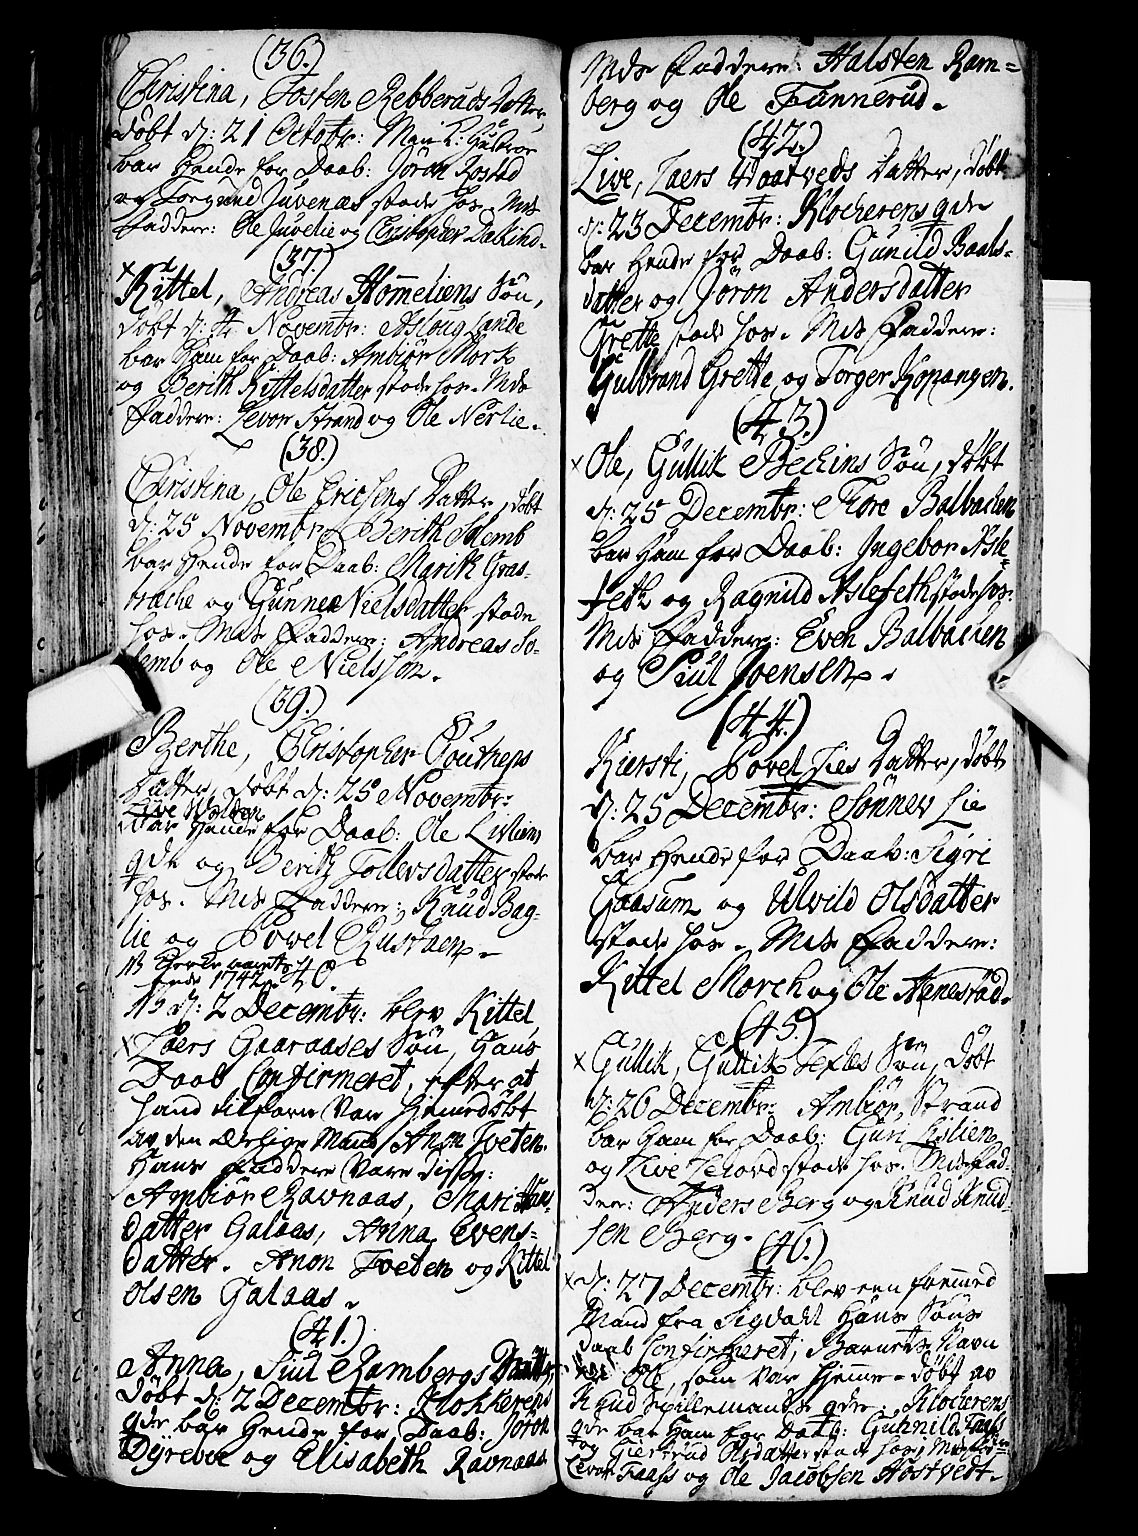 (36.)
Christina, Tosten Rebberuds Datter,
Døbt d: 21 Octobr: Mari
bar Hende for Daab: Joran Rosted
og Juvenæs stode hos. Mds
Faddere: Ole Juvelie og Christopher Dalkind.
(37.)
Kittel, Andreas Homeliens Søn,
døbt d: 4 Novembr: Asloug Lande
bar Ham for Daab: Ambiør Mork
og Berith Kittelsdatter stode hos. Mds
Faddere: Levor Strand og Ole Nerlie.
(38.)
Christina, Ole Ericsens Datter, døbt
d: 25 Novembr. Berith Solemb
bar Hende for Daab: Marith Gras-
og Gunner Nielsdatter stode
hos. Mds Faddere: Andreas So-
lemb og Ole Nielssøn.
(39.)
Berthe, Christopher
Datter, Døbt d: 25 Novembr:
Live
bar Hende for Daab: Ole Liliens
qde og Berith Tollersdatter stode
hos. Mds Faddere: Knud Bag-
lie og Povel Rustaen.
NB
1742. 40.
NB d: 2 Decembr: blev Kittel
Laers Gaaraases Søn, Hans
Daab Confirmeret, efter at
hand tilforn var Hjemedøbt
av den Ærlige Mand Anon Tveten.
Hans Faddere vare disse:
Ambiør Ravnaas, Mari
datter Galaas, Anna Evens-
datter. Anon Tveten og Kittel
Olsen Galaas.
(41.)
Anna, Siul Rambergs Datter,
Døbt d: 2 Decembr: Klokkerens
qde bar Hende for Daab: Joron
Dyreboe og Elisabeth Ravnaas
Mds Faddere: Halsten Ram-
berg og Ole Funnerud.
(42.)
Live, Laers Waatveds Datter, døbt
d: 23 Decembr: Klocherens qde
bar Hende for Daab: Gunild Baals-
datter og Joron Andersdatter
Grette stode hos. Mds Faddere:
Gulbrand Grette og Torger Kopangen.
(43.)
Ole, Gullik Bechins Søn, døbt
d: 25 Decembr: Tore Balbachen
bar Ham for Daab: Ingebor Asle-
feth og Ragnild Aslefeth stode hos.
Mds Faddere: Even Balbachen
og Siul Joensen.
(44.)
Kiersti, Povel Lies Datter, døbt
d: 25 Decembr: Sønnev Lie
bar Hende for Daab: Sigri
Gaasum og Ulvild Olsdatter
stode hos. Mds Faddere:
Kittel Morch og Ole Aanesrud.
(45.)
Gullik, Gullik Texles Søn, Døbt
d: 26 Decembr: Ambiør Strand
bar Ham for Daab: Guri Lislien
og Live stode hos. Mds Fad-
dere: Anders Berg og Knud Knud-
sen Berg.
(46.)
d: 27 Decembr: blev een fremmed
Mand fra Sigdahl Hans Søns
daab Confirmeret, Barnets Navn
var Ole, som var Hjemme-døbt av
Knud Spillemands qde. Klocherens
qde bar Ham for Daab: Gunnild Faafs
og Giertrud Olsdatter stode hos, Mds
Levor Faass og Ole Jacobsen Hostvedt.